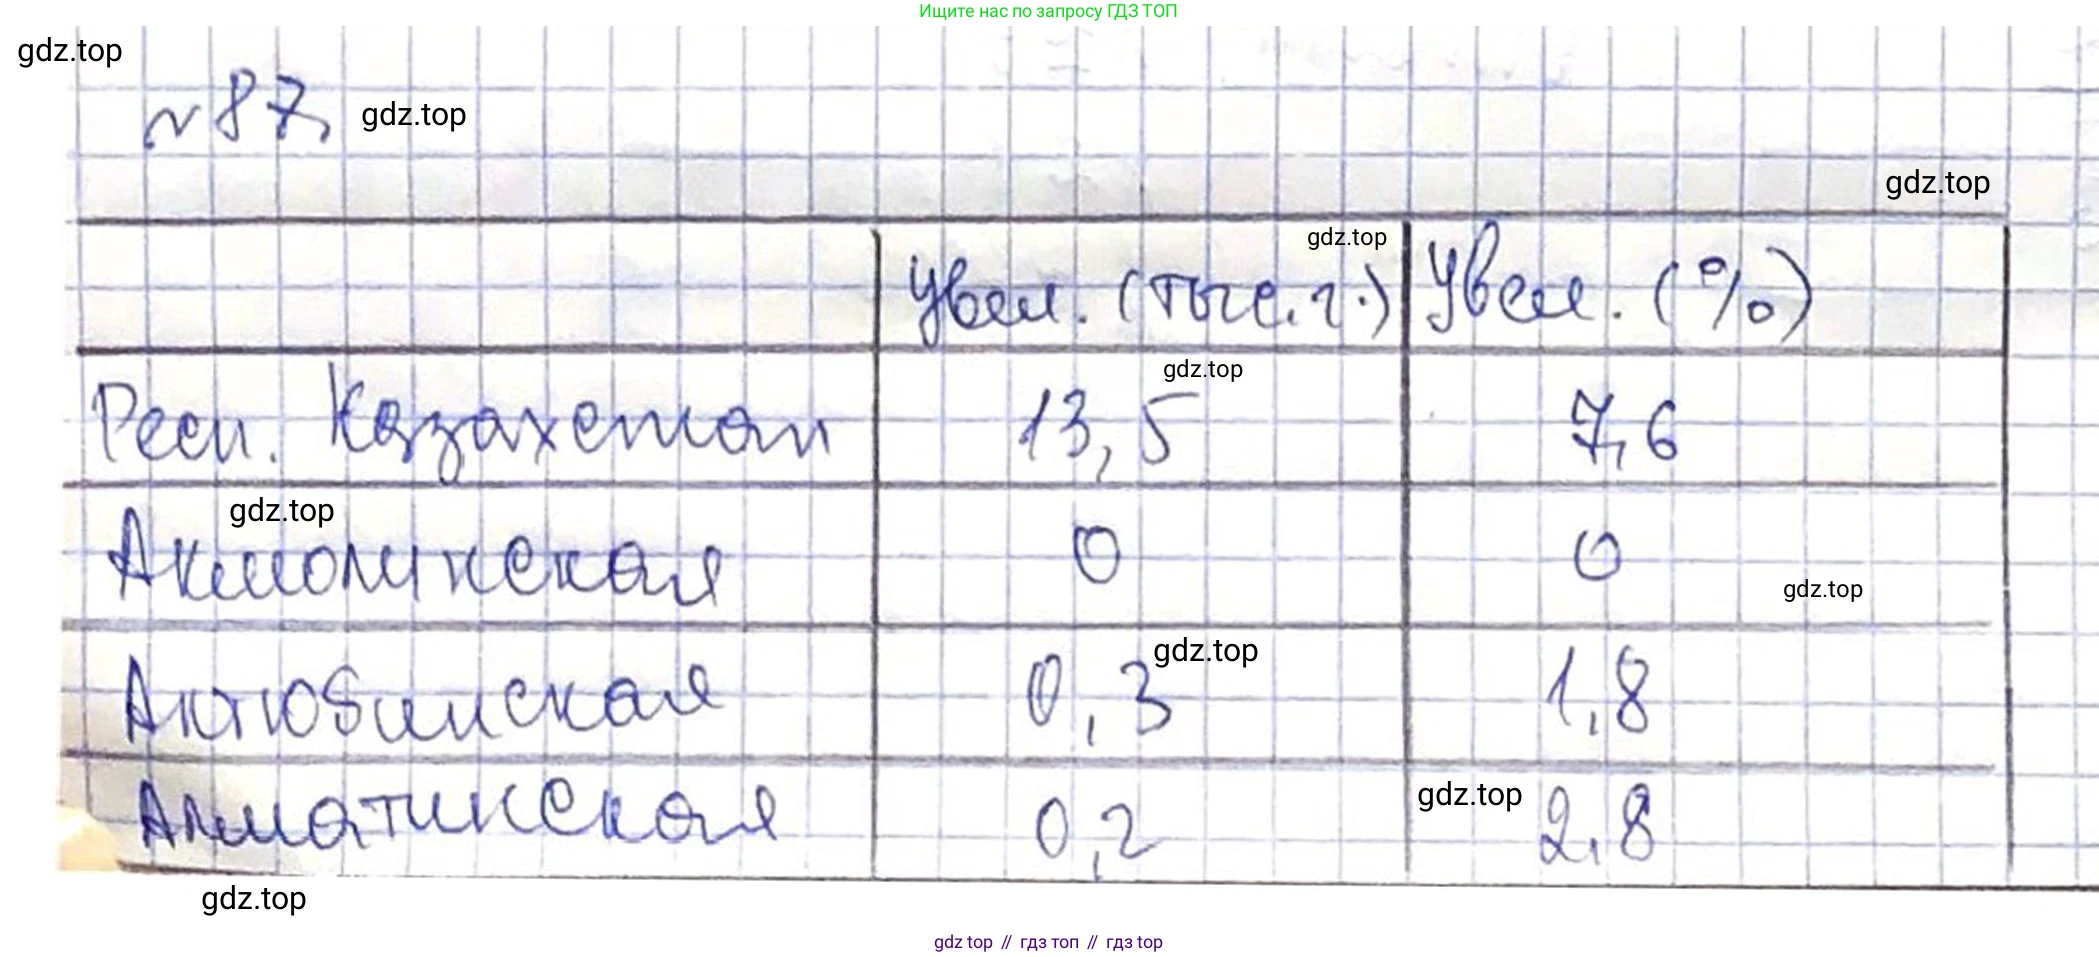 Ищите нас по запросу ГДЗ ТОП
gdz.top
№87, gdz.top
gdz.top
gdz.top
Увел. (тыс. г.) Увел. (%)
gdz.top
Респ. Казахстан 13,5 7,6
gdz.top
Акмолинская 0 0
gdz.top
gdz.top
Актюбинская 0,3 1,8
gdz.top
Алматинская 0,2 2,8
gdz.top
gdz top // гдз топ // гдз top